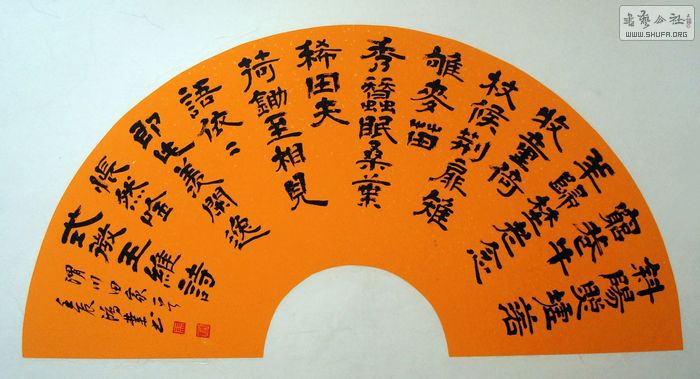 斜陽照墟落
窮巷牛
羊歸埜老念
牧童倚
杖候荊扉雉
雊麥苗
秀蠶眠桑葉
稀田夫
荷鋤至相見
語依〻
即此羨閒逸
悵然吟
式微王維詩
渭川田家
壬辰
书艺公社
WWW.SHUFA.ORG